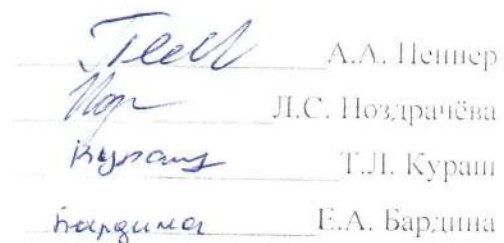 А.А. Пеннер
Л.С. Ноздрачёва
Кураш Т.Л. Кураш
Бардина Е.А. Бардина